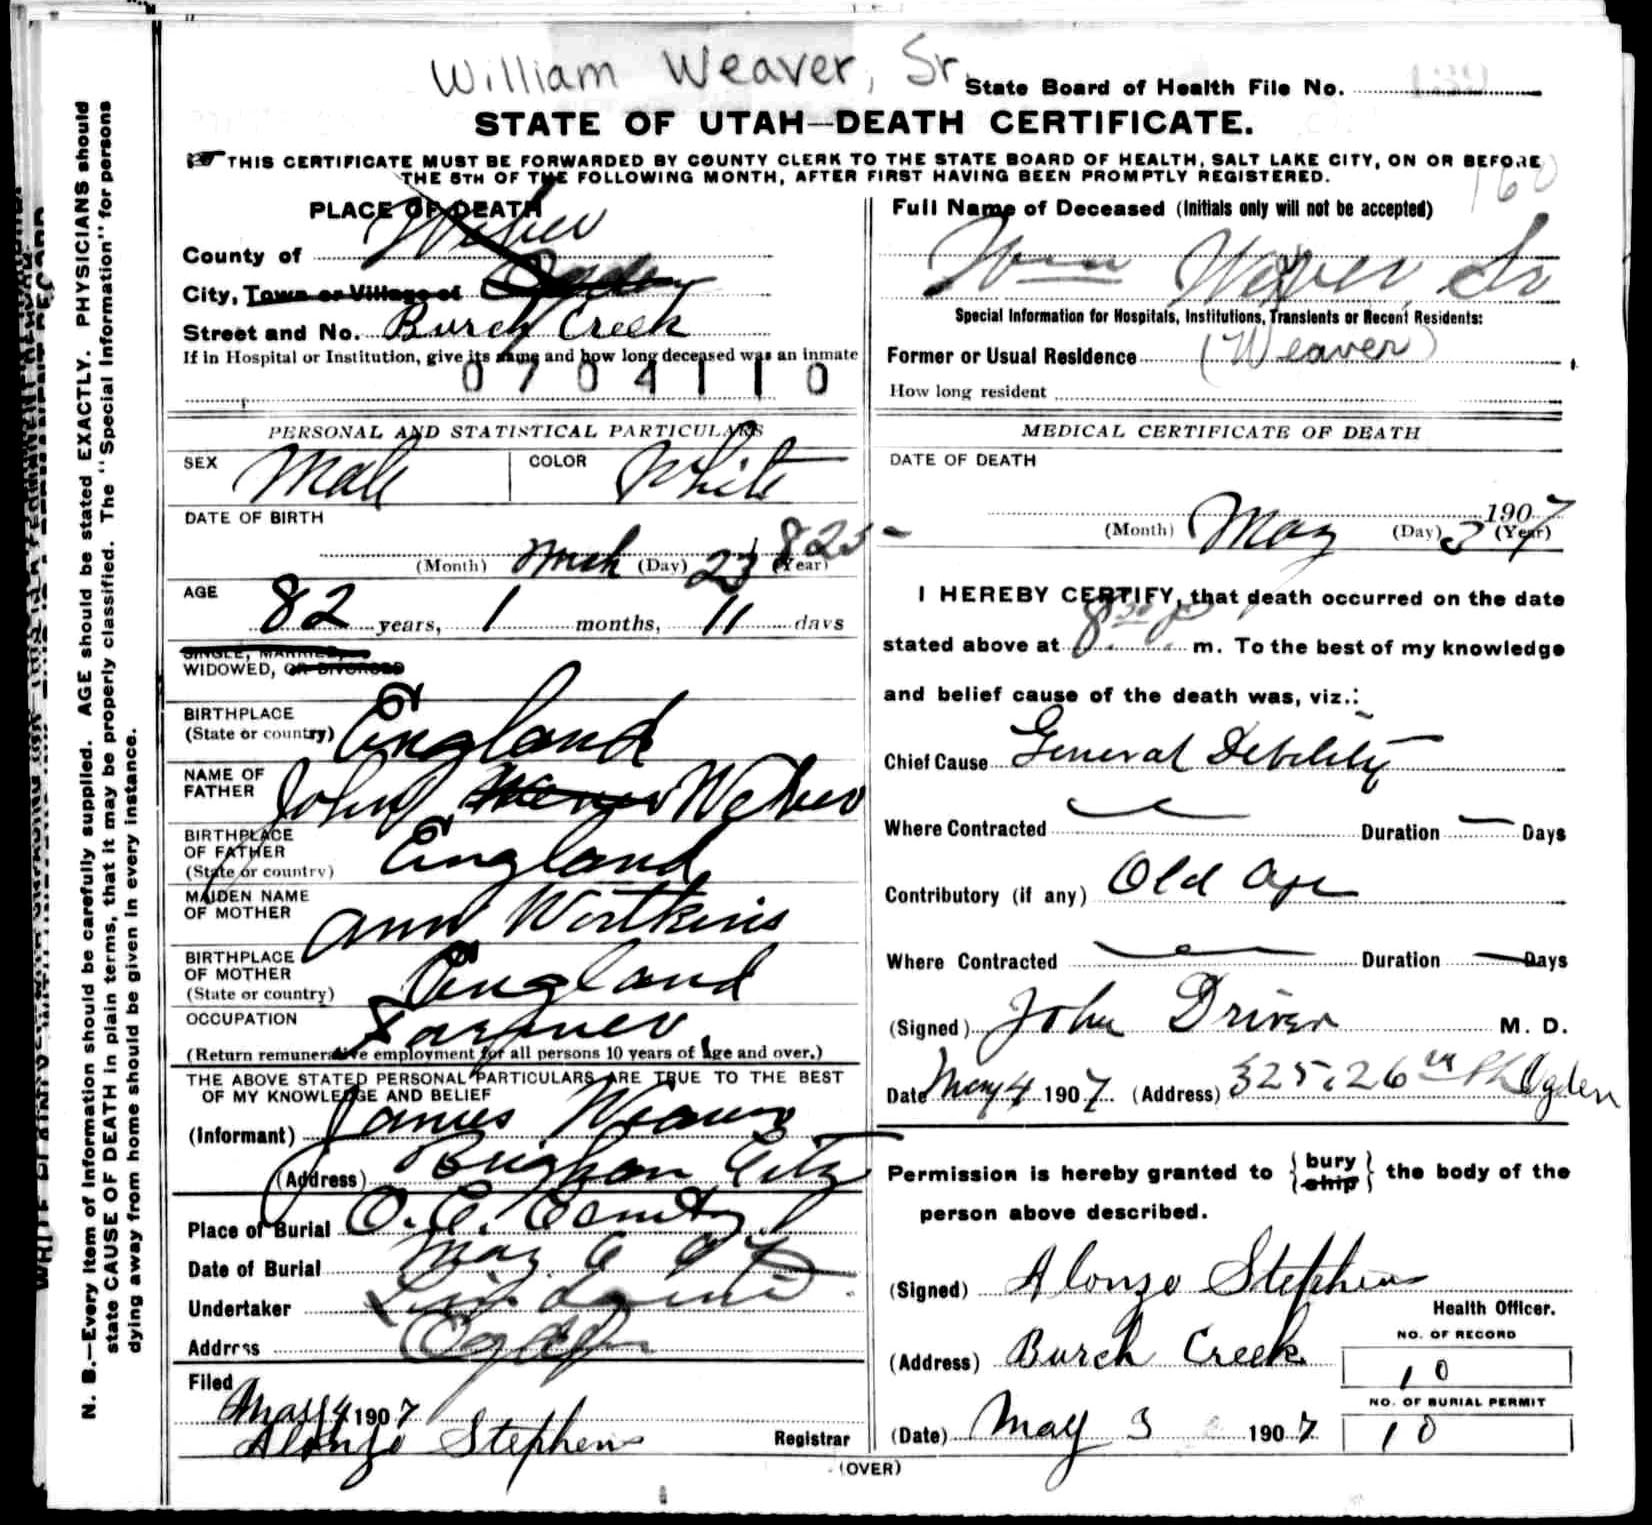 William Weaver, Sr.
State Board of Health File No.
STATE OF UTAH—DEATH CERTIFICATE.
THIS CERTIFICATE MUST BE FORWARDED BY COUNTY CLERK TO THE STATE BOARD OF HEALTH, SALT LAKE CITY, ON OR BEFORE
THE 5TH OF THE FOLLOWING MONTH, AFTER FIRST HAVING BEEN PROMPTLY REGISTERED.
160
PLACE OF DEATH
County of Weber
City, Town or Village of Ogden
Street and No. Burch Creek
If in Hospital or Institution, give its name and how long deceased was an inmate
0704110
Full Name of Deceased (Initials only will not be accepted)
Wm Weaver, Sr
Special Information for Hospitals, Institutions, Transients or Recent Residents:
Former or Usual Residence (Weaver)
How long resident
PERSONAL AND STATISTICAL PARTICULARS
SEX Male COLOR White
DATE OF BIRTH
(Month) Mch (Day) 23 (Year) 1825
AGE
82 years, 1 months, 11 days
SINGLE, MARRIED,
WIDOWED, OR DIVORCED
BIRTHPLACE
(State or country) England
NAME OF
FATHER John Weaver
BIRTHPLACE
OF FATHER
(State or country) England
MAIDEN NAME
OF MOTHER Ann Watkins
BIRTHPLACE
OF MOTHER
(State or country) England
OCCUPATION Farmer
(Return remunerative employment for all persons 10 years of age and over.)
THE ABOVE STATED PERSONAL PARTICULARS ARE TRUE TO THE BEST
OF MY KNOWLEDGE AND BELIEF
(Informant) James Weaver
(Address) Brigham City
Place of Burial O. C. Cemetry
Date of Burial May 6 07
Undertaker
Address Ogden
Filed
May 4 1907
Alonzo Stephens Registrar
MEDICAL CERTIFICATE OF DEATH
DATE OF DEATH
(Month) May (Day) 3 1907 (Year)
I HEREBY CERTIFY, that death occurred on the date
stated above at 8 30 p m. To the best of my knowledge
and belief cause of the death was, viz.:
Chief Cause General Debility
Where Contracted Duration — Days
Contributory (if any) Old Age
Where Contracted Duration — Days
(Signed) John Driver M. D.
Date May 4 1907. (Address) 325. 26 th Ogden
Permission is hereby granted to {bury ship} the body of the
person above described.
(Signed) Alonzo Stephens
Health Officer.
(Address) Burch Creek
NO. OF RECORD
10
NO. OF BURIAL PERMIT
10
(Date) May 3 1907
(OVER)
N. B.—Every item of information should be carefully supplied. AGE should be stated EXACTLY. PHYSICIANS should
state CAUSE OF DEATH in plain terms, that it may be properly classified. The "Special Information" for persons
dying away from home should be given in every instance.